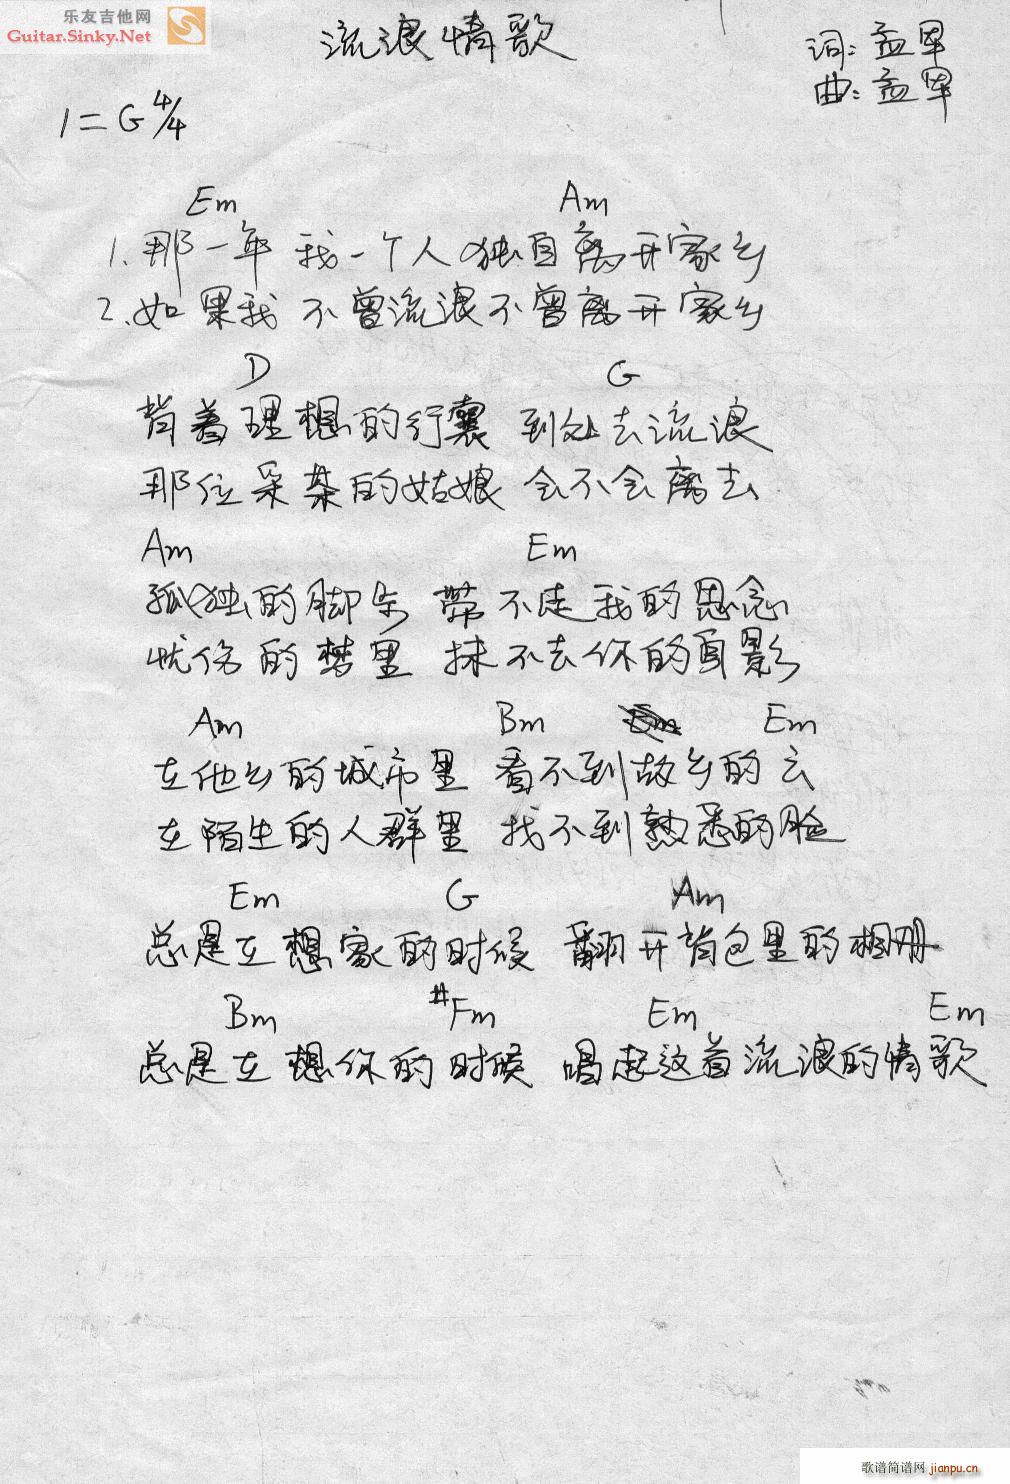 乐友吉他网
Guitar.Sinky.Net
流浪情歌
词: 孟军
曲: 孟军
1=G 4/4
Em Am
1. 那一年 我一个人 独自离开家乡
2. 如果我 不曾流浪不曾离开家乡
D G
背着理想的行囊 到处去流浪
那位采茶的姑娘 会不会离去
Am Em
孤独的脚步 带不走我的思念
忧伤的梦里 抹不去你的身影
Am Bm Em
在他乡的城市里 看不到故乡的云
在陌生的人群里 找不到熟悉的脸
Em G Am
总是在想家的时候 翻开背包里的相册
Bm #Fm Em Em
总是在想你的时候 唱起这首流浪的情歌
歌谱简谱网 jianpu.cn